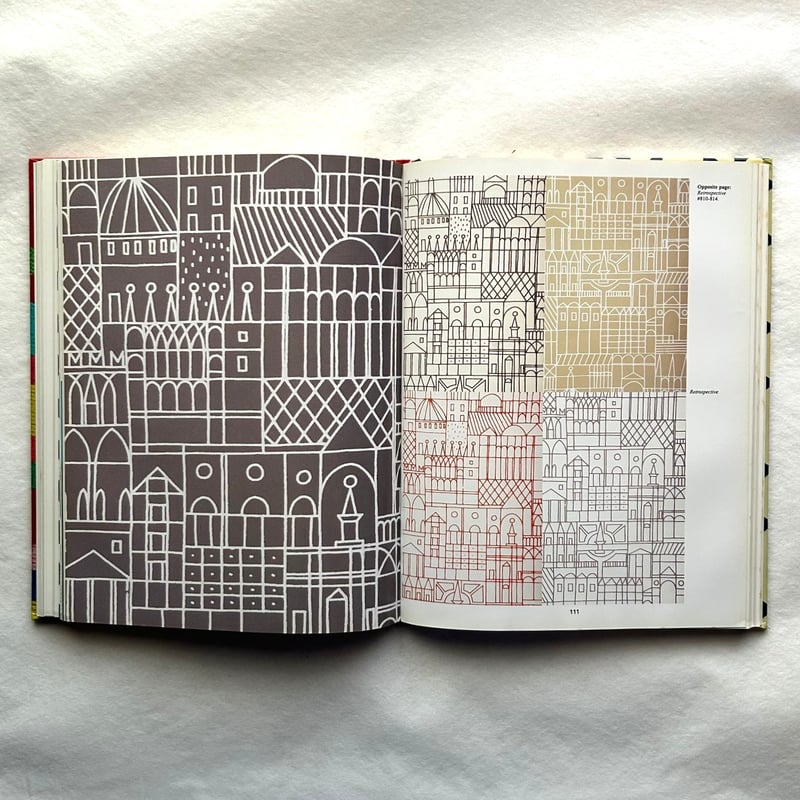 Opposite page:
Retrospective
#810-814.
Retrospective
111